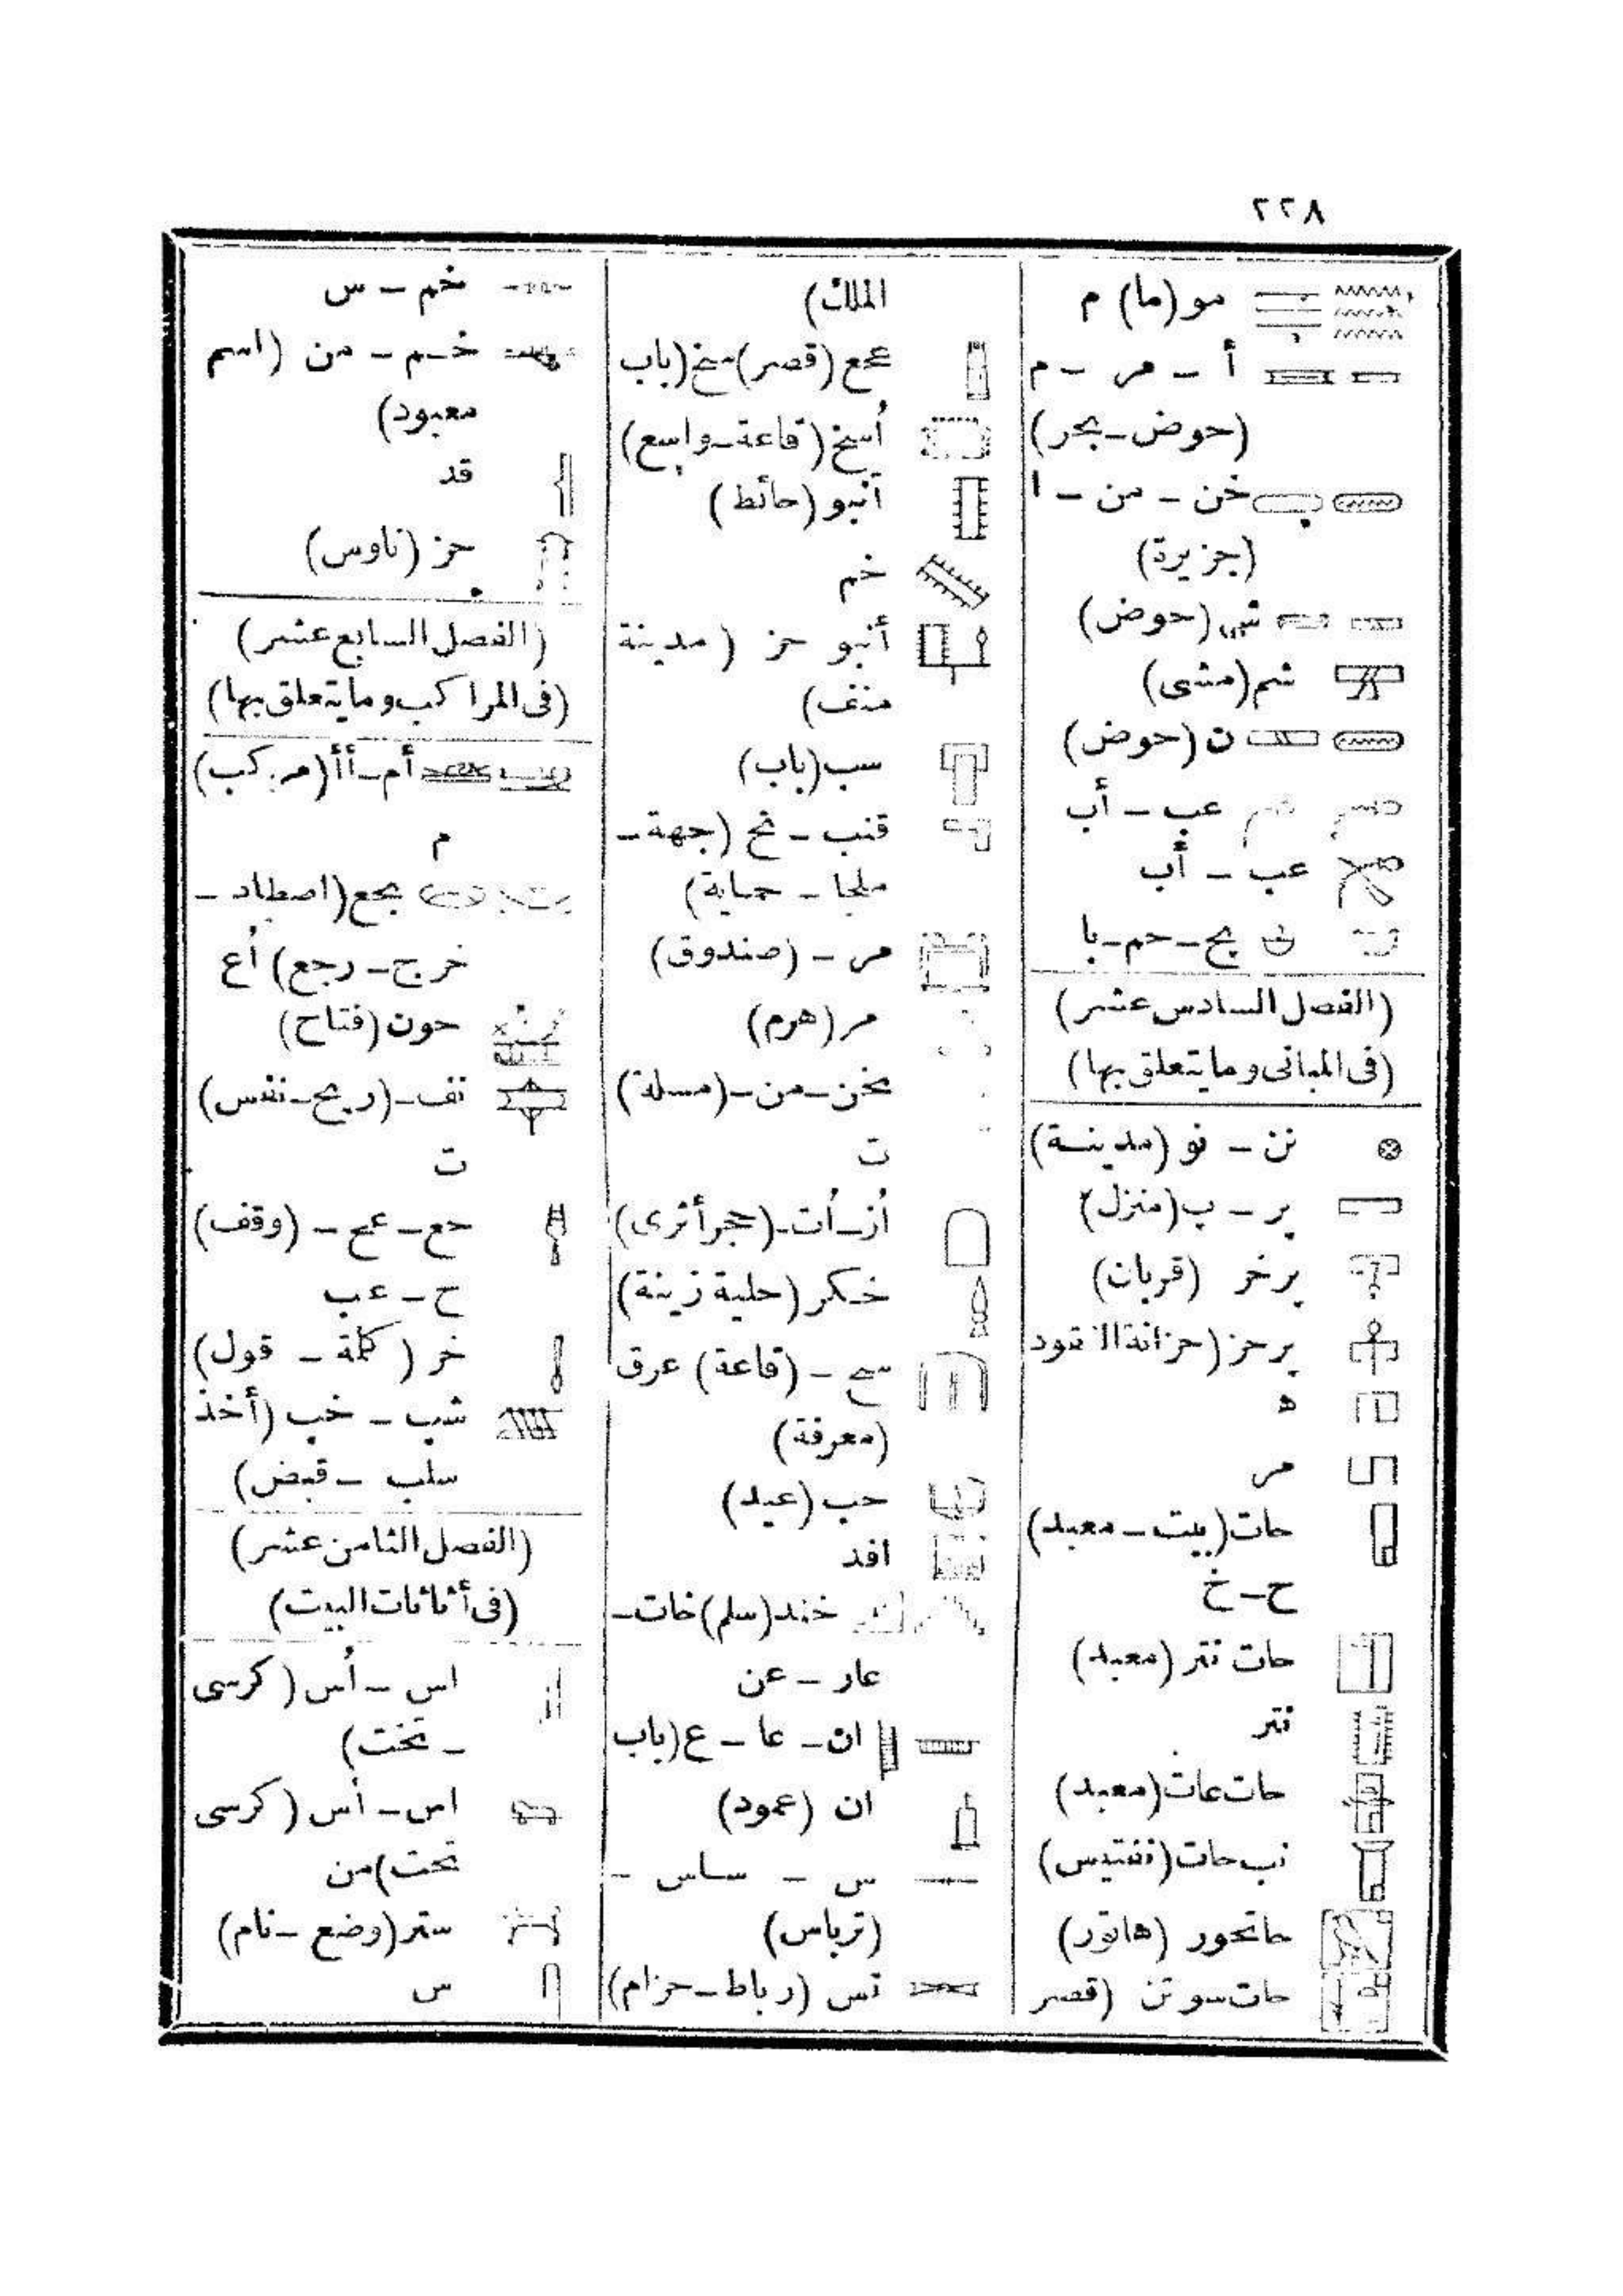 ٢٢٨
مو (ما) م
أ - مر - م
(حوض - بحر)
خن - من - ا
(جزيرة)
شى (حوض)
شم (مشى)
ن (حوض)
عب - أب
عب - أب
بج - حم - با
(الفصل السادس عشر)
(فى المبانى وما يتعلق بها)
نن - نو (مدينة)
پر - پ (منزل)
پرخر (قربان)
پرحز (خزانة النقود
ه
مر
حات (بيت - معبد)
ح - خ
حات نتر (معبد)
نتر
حات عات (معبد)
نب حات (نفتيس)
حاتحور (هاتور)
حات سوتن (قصر
الملك)
عع (قصر) سخ (باب
أسخ (قاعة - واسع)
أنبو (حائط)
خم
أنبو حز (مدينة
منف)
سب (باب)
قنب - نح (جهة -
ملجا - حماية)
مر - (صندوق)
مر (هرم)
تخن - من - (مسلة)
ت
أز - أت - (حجر أثرى)
خكر (حلية زينة)
سح - (قاعة) عرق
(معرفة)
حب (عيد)
افد
خند (سلم) خات -
عار - عن
ان - عا - ع (باب
ان (عمود)
س - ساس -
(ترباس)
تس (رباط - حزام)
خم - س
خم - من (اسم
معبود)
قد
حز (ناوس)
(الفصل السابع عشر)
(فى المراكب وما يتعلق بها)
أم - أأ (مركب)
م
بحع (اصطاد -
خرج - رجع) أع
حون (فتاح)
نف - (ريح - نفس)
ت
حع - عح - (وقف)
ح - عب
خر (كلمة - قول)
شب - خب (أخذ
سلب - قبض)
(الفصل الثامن عشر)
(فى أثاثات البيت)
اس - أس (كرسى
- تخت)
اس - أس (كرسى
تخت) من
ستر (وضع - نام)
س